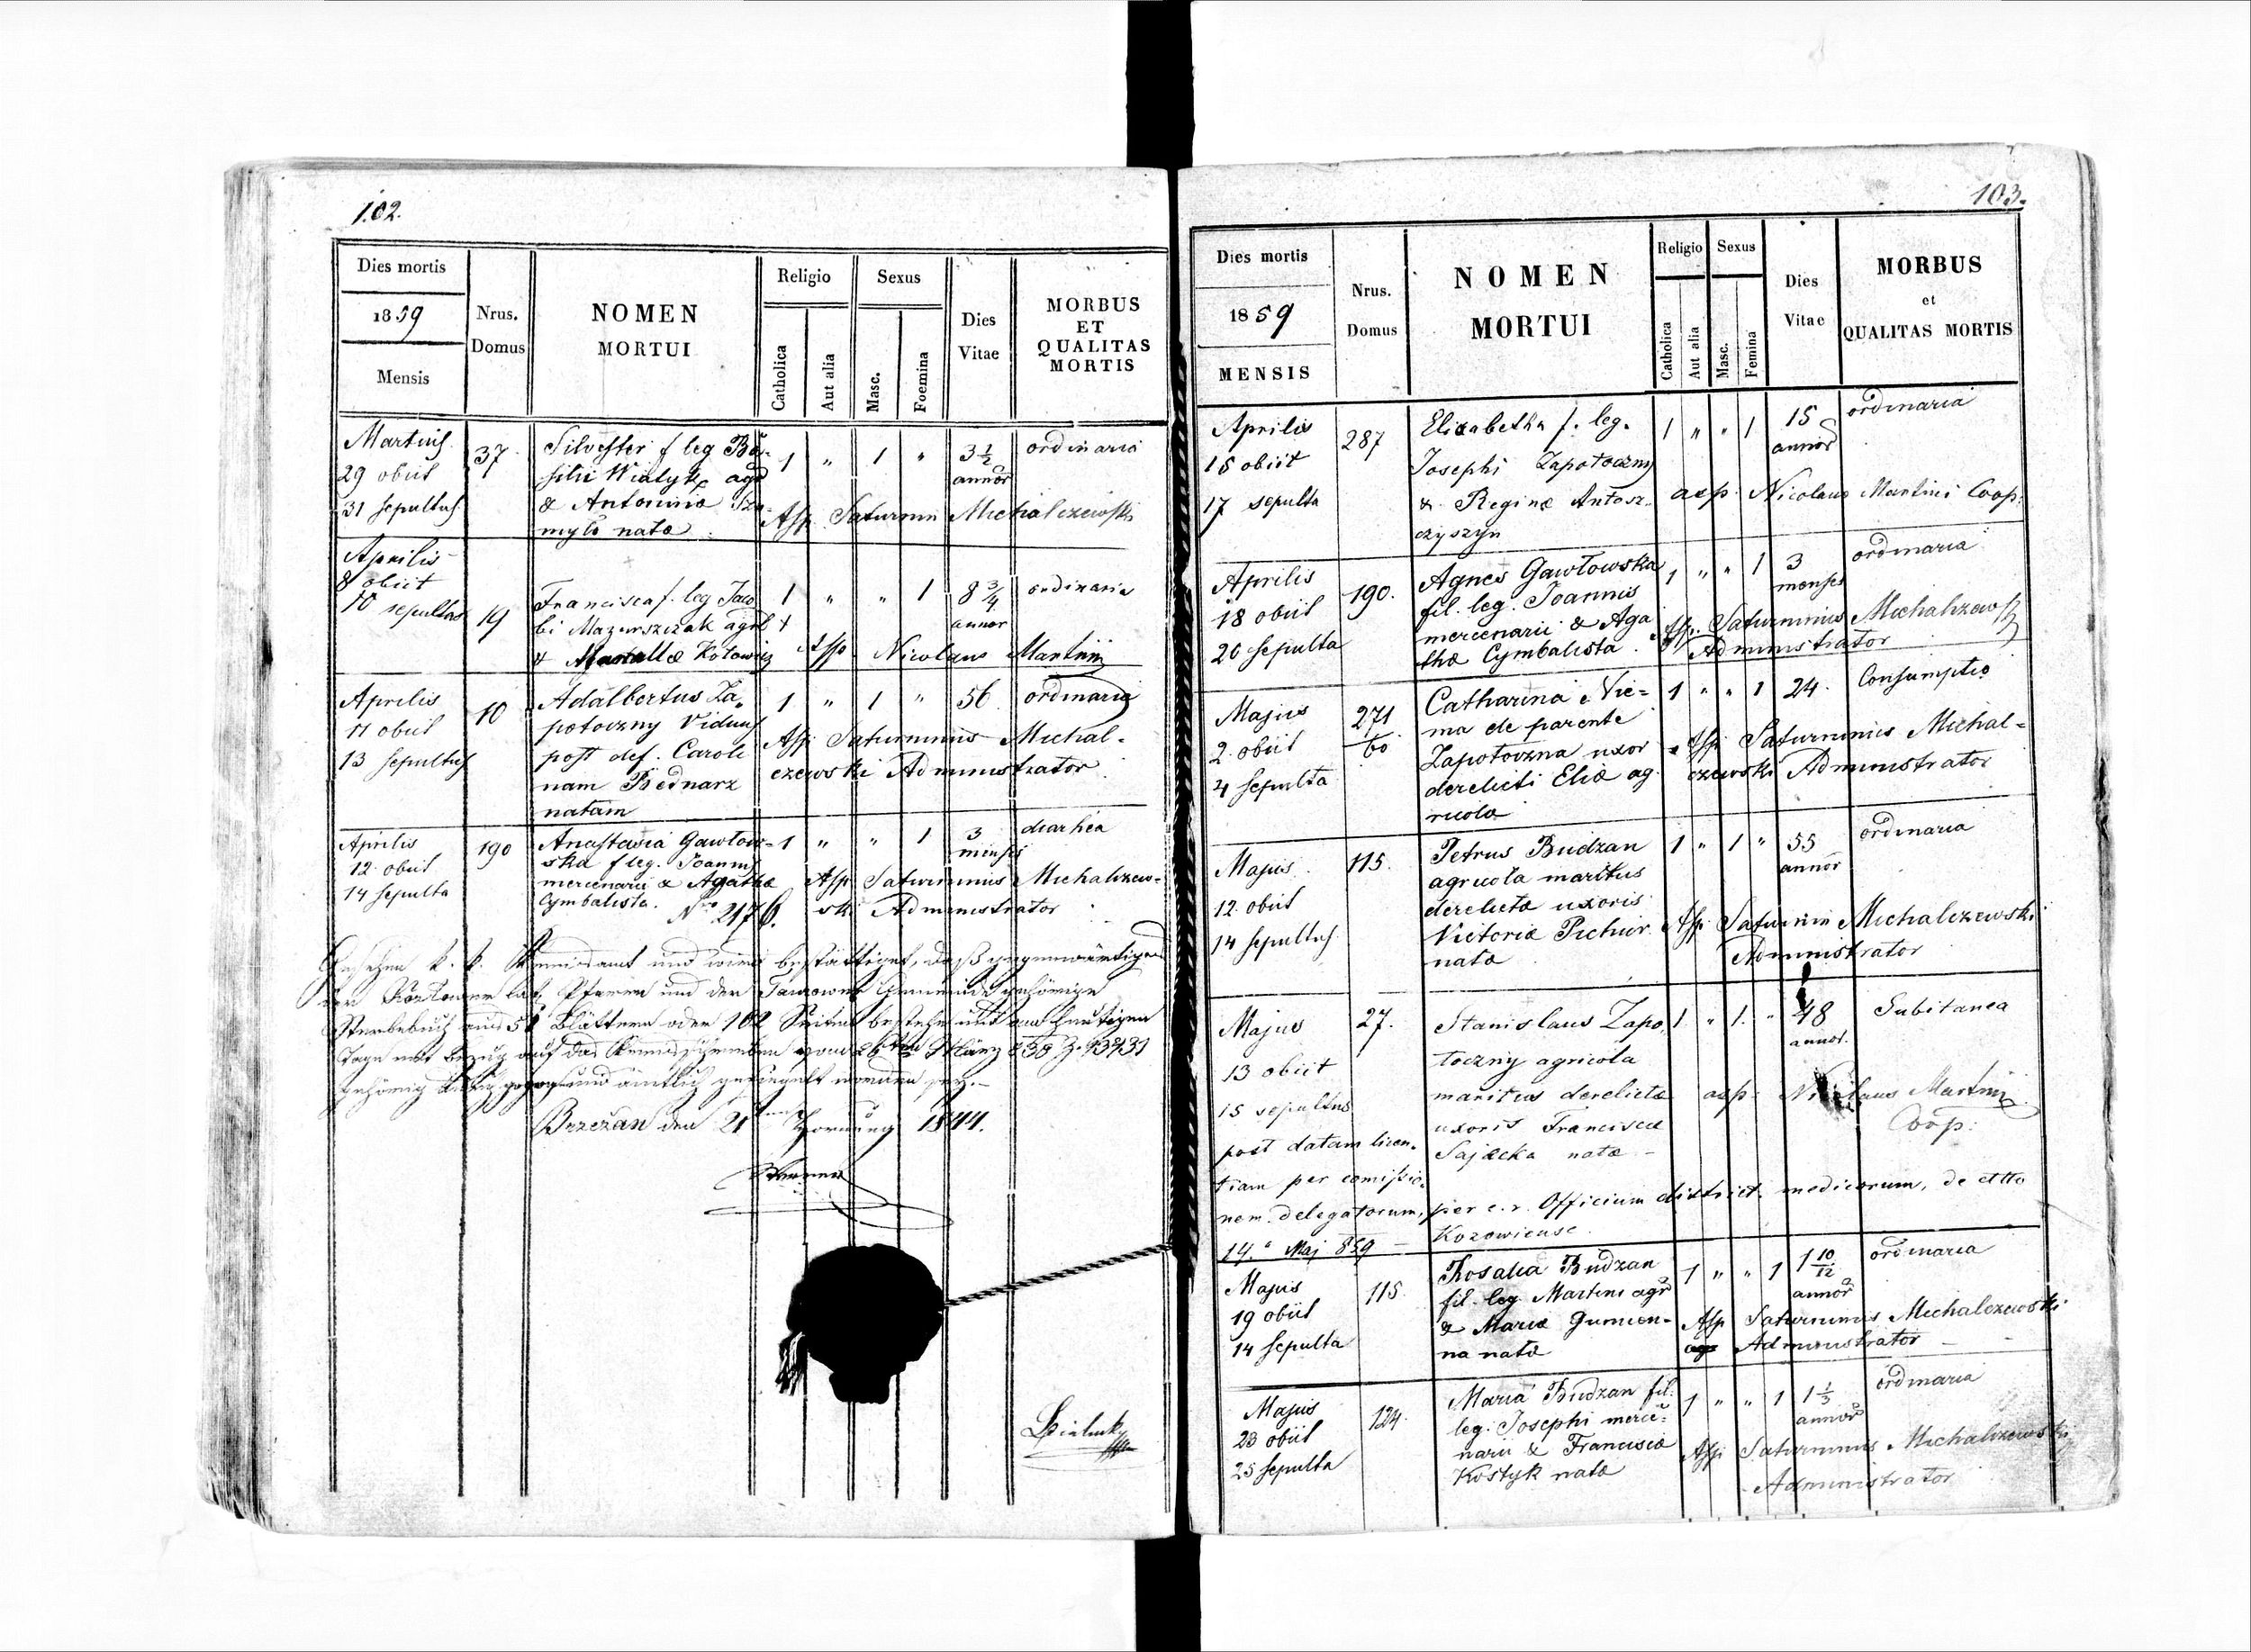 102.
Dies mortis
1859
Mensis
Nrus.
Domus
NOMEN
MORTUI
Religio
Catholica
Aut alia
Sexus
Masc.
Foemina
Dies
Vitae
MORBUS
ET
QUALITAS
MORTIS
Martius
29 obiit
31 sepultus
37
Silvester f leg Ba-
silii Wialyk agr
& Antoninæ Szu-
mylo nata
1 " 1 " 3 1/2
annor
ordinaria
Assp. Saturnin Michalczewski
Aprilis
8 obiit
10 sepultus
19
Francisca f. leg Jaco
bi Mazurszczak agrl
& Kotowicz
1 " " 1 8 3/4
annor
ordinaria
Assp Nicolaus Martini
Aprilis
11 obiit
13 sepultus
10
Adalbertus Za-
potoczny Viduus
post def. Caroli
nam Bednarz
natam
1 " 1 " 56
ordinaria
Assp Saturninus Michal-
czewski Administrator
Aprilis
12 obiit
14 sepulta
190
Anastasia Gawłow-
ska f leg. Joannis
mercenarii & Agathæ
Cymbalista.
1 " " 1 3
mensis
diarhea
Assp Saturninus Michalczew-
ski Administrator
Nro 2176.
k. k. und wird bestättiget, daß gegenwärtiges
der lat. Pfarre und der Gemeinde gehörige
Sterbebuch aus 51 Blättern oder 102 Seiten bestehe und am heutigen
Tage mit Bezug auf das vom 26ten März
gehörig und ämtlich gesiegelt worden sey.
Brzeżan den 21ten Hornung 1844.
103.
Dies mortis
1859
MENSIS
Nrus.
Domus
NOMEN
MORTUI
Religio
Catholica
Aut alia
Sexus
Masc.
Femina
Dies
Vitae
MORBUS
et
QUALITAS MORTIS
Aprilis
15 obiit
17 sepulta
287
Elisabetha f. leg.
Josephi Zapotoczny
& Reginæ Antosz-
czyszyn
1 " " 1 15
annor
ordinaria
assp. Nicolaus Martini Coop:
Aprilis
18 obiit
20 sepulta
190.
Agnes Gawłowska
fil. leg. Joannis
mercenarii & Aga
thæ Cymbalista.
1 " " 1 3
menses
ordinaria
Assp. Saturninus Michalczewski
Administrator
Majus
2. obiit
4 sepulta
271
60
Catharina Nie-
ma de parente
Zapotoczna uxor
derelicti Eliæ ag-
ricolæ
1 " " 1 24.
Consumptio
Assp. Saturninus Michal-
czewski Administrator
Majus
12. obiit
14 sepultus
115.
Petrus Budzan
agricola maritus
derelictæ uxoris
Victoriæ Pichur
natæ
1 " 1 " 55
annor
ordinaria
Assp. Saturnin Michalczewski
Administrator
Majus
13 obiit
15 sepultus
27.
Stanislaus Zapo-
toczny agricola
maritus derelictæ
uxoris Franciscæ
Sajecka natæ -
1 " 1. " 48
annor.
Subitanea
assp. Nicolaus Martini
Coop:
post datam licen-
tiam per comissio-
nem delegatorum, per c. r. Officium district. medicorum, de etto
14. Maj 859 - Kozowiense
Majus
19 obiit
14 sepulta
115.
Rosalia Budzan
fil. leg Martini agr
& Mariæ Gumien-
na natæ
1 " " 1 1 10/12
annor
ordinaria
Assp Saturninus Michalczewski
Administrator
Majus
23 obiit
25 sepulta
124.
Maria Budzan fil.
leg. Josephi merce-
narii & Franciscæ
Kostyk natæ
1 " " 1 1 1/3
annor
ordinaria
Assp Saturninus Michalczewski
Administrator